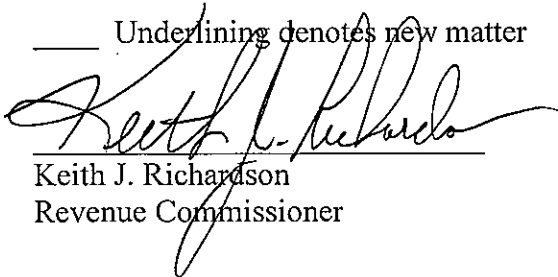 ____ Underlining denotes new matter
Keith J. Richardson
Keith J. Richardson
Revenue Commissioner